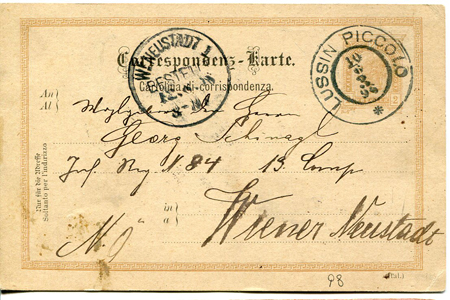 Correspondenz-Karte.
Cartolina di corrispondenza.
LUSSIN PICCOLO
WR. NEUSTADT 1
BESTELLT
An
Al
Georg Schinagl
Inf. Reg. № 84 13. Comp
in
a
Wiener Neustadt
Nur für die Adresse
Soltanto per l'indirizzo
98
(Ital.)